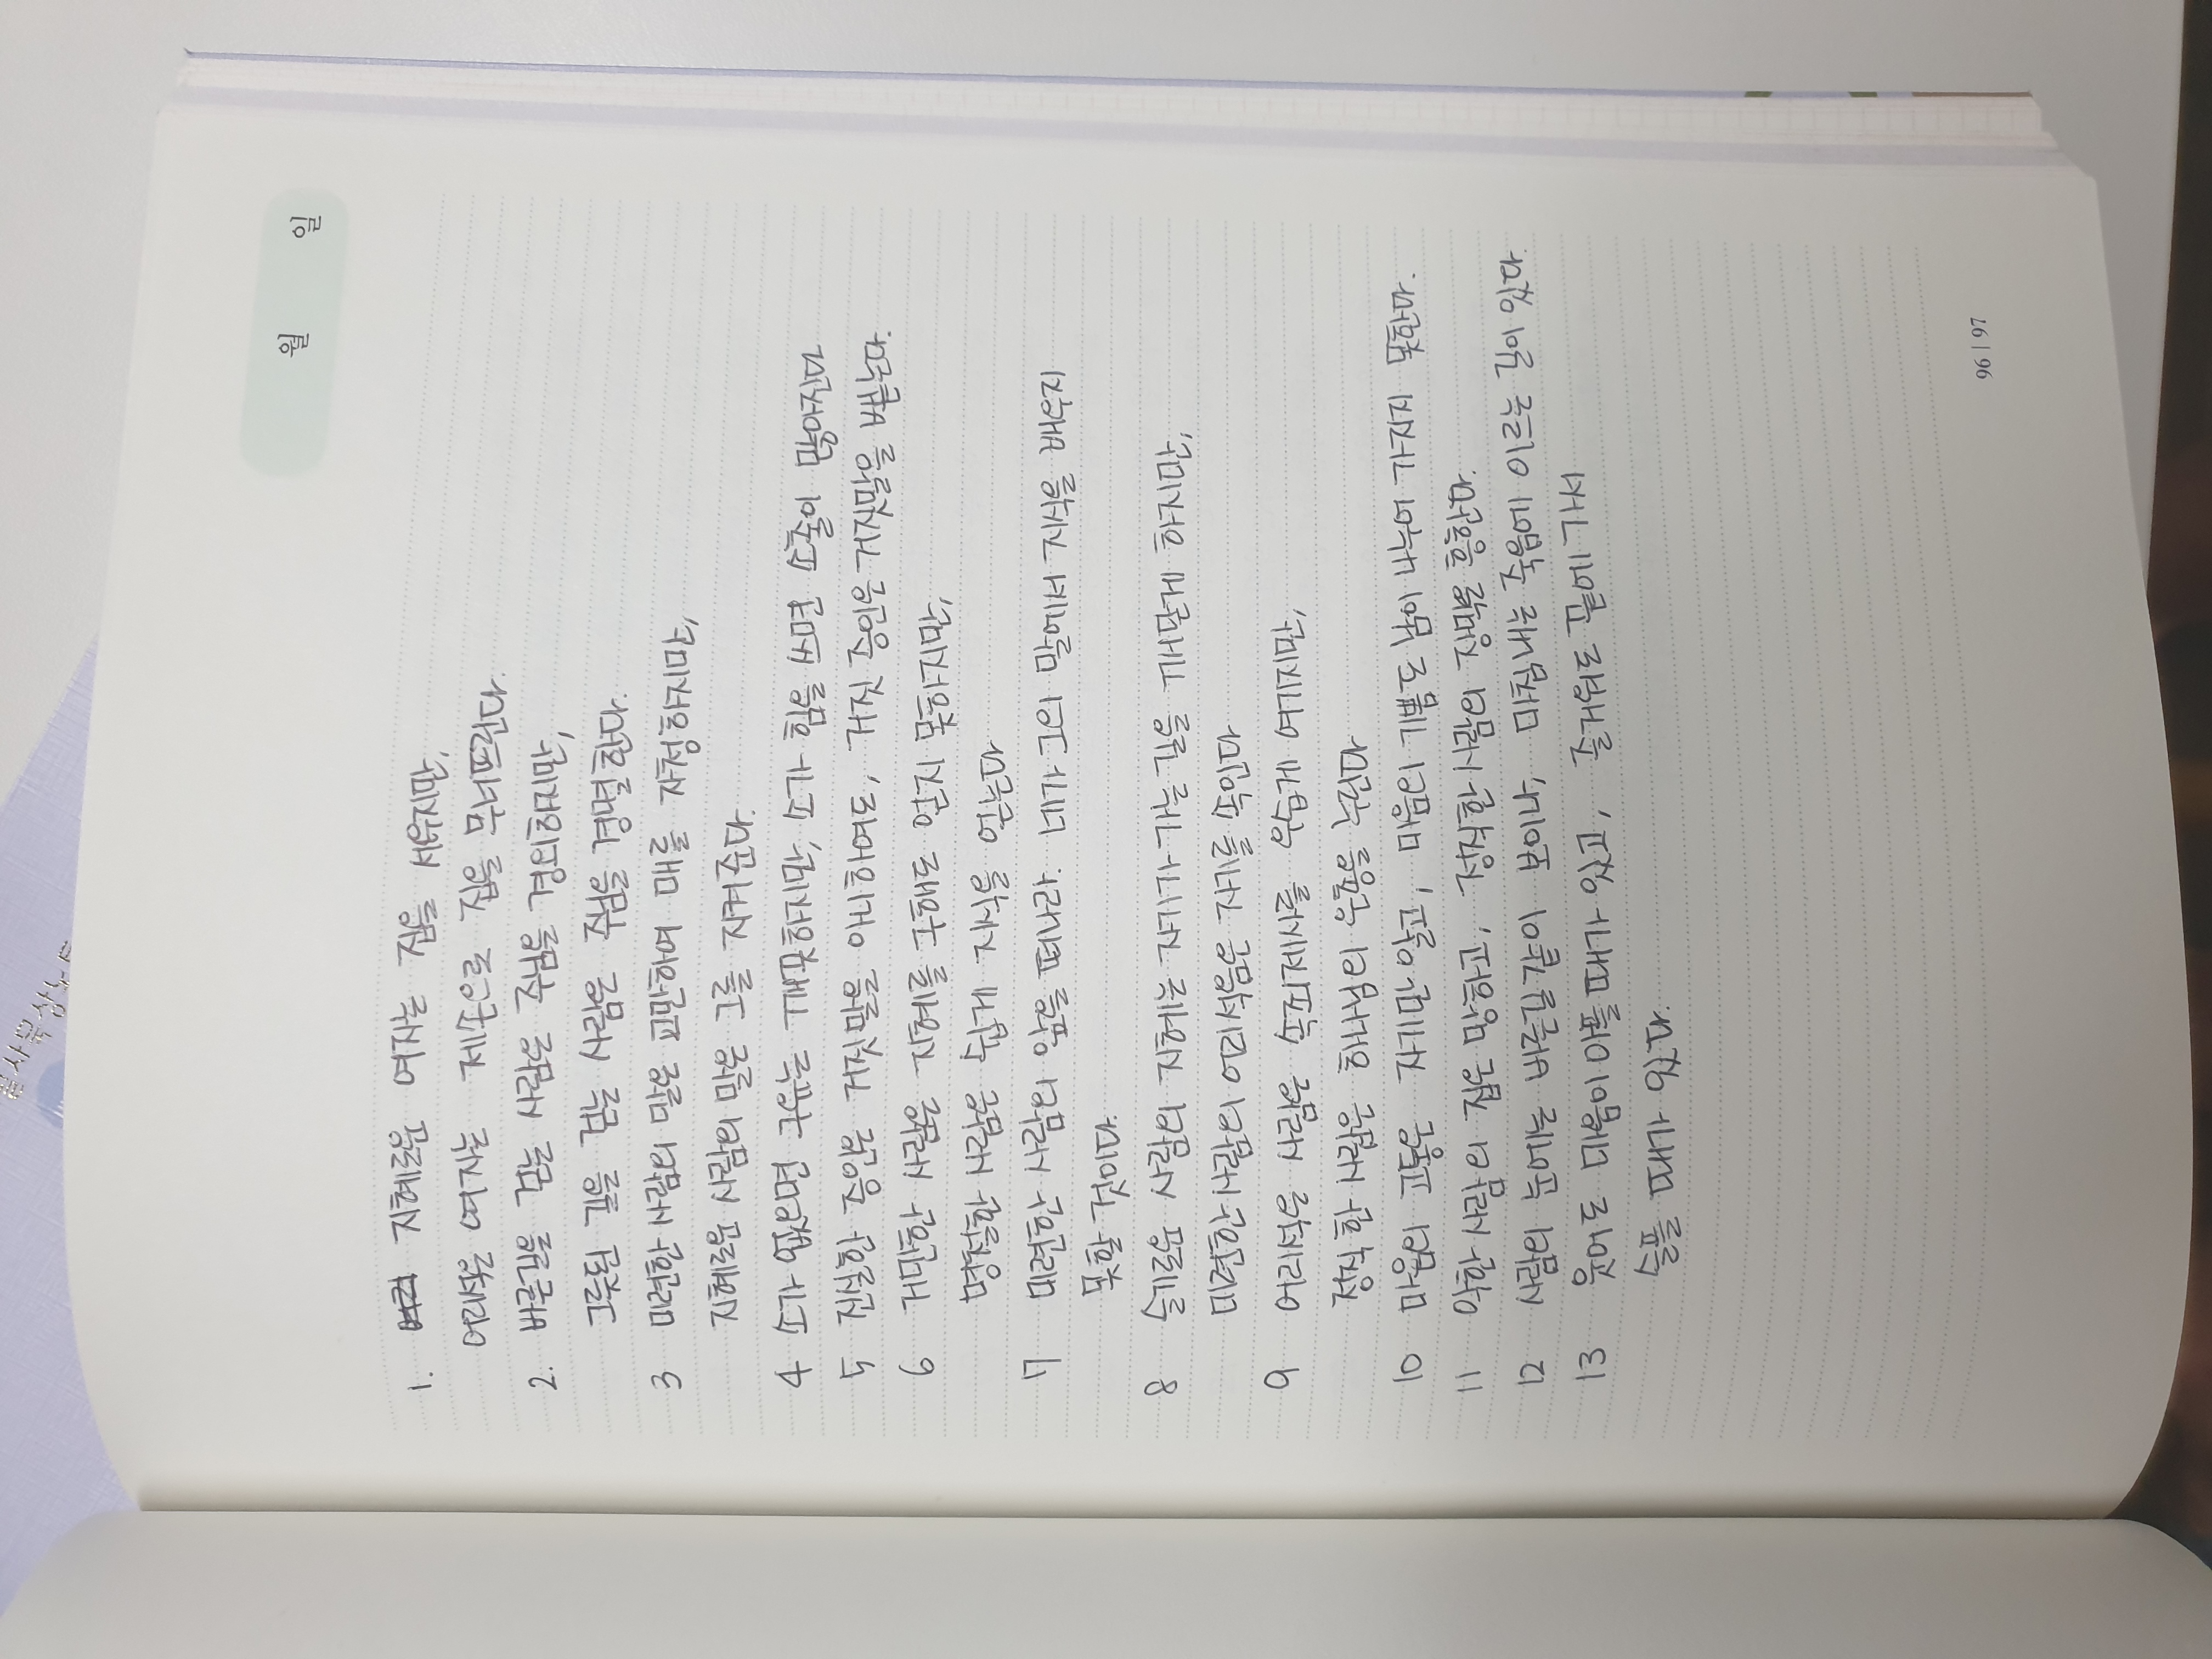 월 일
1. 지혜로운 여자는 집을 세우지만,
어리석은 여자는 제 손으로 집을 무너뜨린다.
2. 바른길을 걷는 사람은 주님을 경외하지만,
그릇된 길을 걷는 사람은 주님을 경멸한다.
3 미련한 사람의 말은 교만하여 매를 자청하지만,
지혜로운 사람의 말은 그를 지켜준다.
4 소가 없으면 구유는 깨끗하지만, 소가 힘을 쓰면 소출이 많아진다
5 진실한 증인은 거짓말을 하지 아니하여도, 거짓 증인은 거짓말을 뱉는다.
6 거만한 사람은 지혜를 구해도 얻지 못하지만,
명철한 사람은 쉽게 지식을 얻는다.
7 미련한 사람의 앞을 떠나라. 네가 그의 말에서 지식을 배우지
못할 것이다.
8 슬기로운 사람의 지혜는 자기가 가는 길을 깨닫게 하지만,
미련한 사람의 어리석음은 자기를 속인다.
9 어리석은 사람은 우습게 여기지만,
정직한 사람은 하나님의 은총을 누린다.
10 마음의 고통은 자기만 알고, 마음의 기쁨도 남이 나누어 가지지 못한다.
11 악한 사람의 집은 망하고, 정직한 사람의 장막은 흥한다.
12 사람의 눈에는 바른길 같이 보이나, 마침내는 죽음에 이르는 길이 있다.
13 웃어도 마음이 아플 때가 있고, 즐거워도 끝에 가서
슬플 때가 있다.
96 | 97